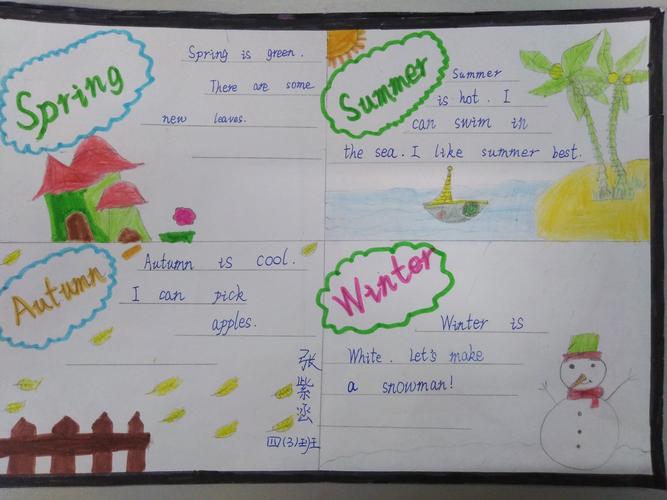 Spring
Spring is green.
There are some
new leaves.
Summer
Summer
is hot. I
can swim in
the sea. I like summer best.
Autumn
Autumn is cool.
I can pick
apples.
张紫涵
四(3)班
Winter
Winter is
White. Let's make
a snowman!